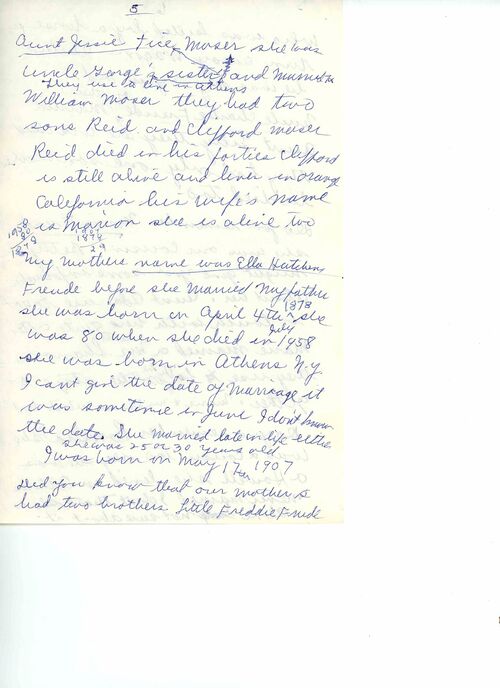 5
Aunt Jessie Fick Moser she was
Uncle George's sister and married to
They use to live in Athens
William Moser they had two
sons Reid and Clifford Moser
Reid died in his forties Clifford
is still alive and lives in orange
California his wife's name
is Marion she is alive two
1958
80
1878
1907
1878
29
My mothers name was Ella Hutchens
Freude before she married my father
she was born on April 4th 1878 she
was 80 when she died in July 1958
she was born in Athens N.Y.
I cant give the date of Marriage it
was sometime in June I don't know
the date. She married late in life either
she was 25 or 30 years old
I was born on May 17th 1907
Did you know that our mothers
had two brothers. Little Freddie Frude